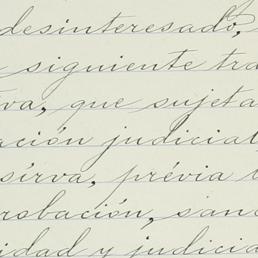 desinteresado,
siguiente tra
va, que sujeta
ación judicial,
sírva, prévia
robación, san
idad y judicia